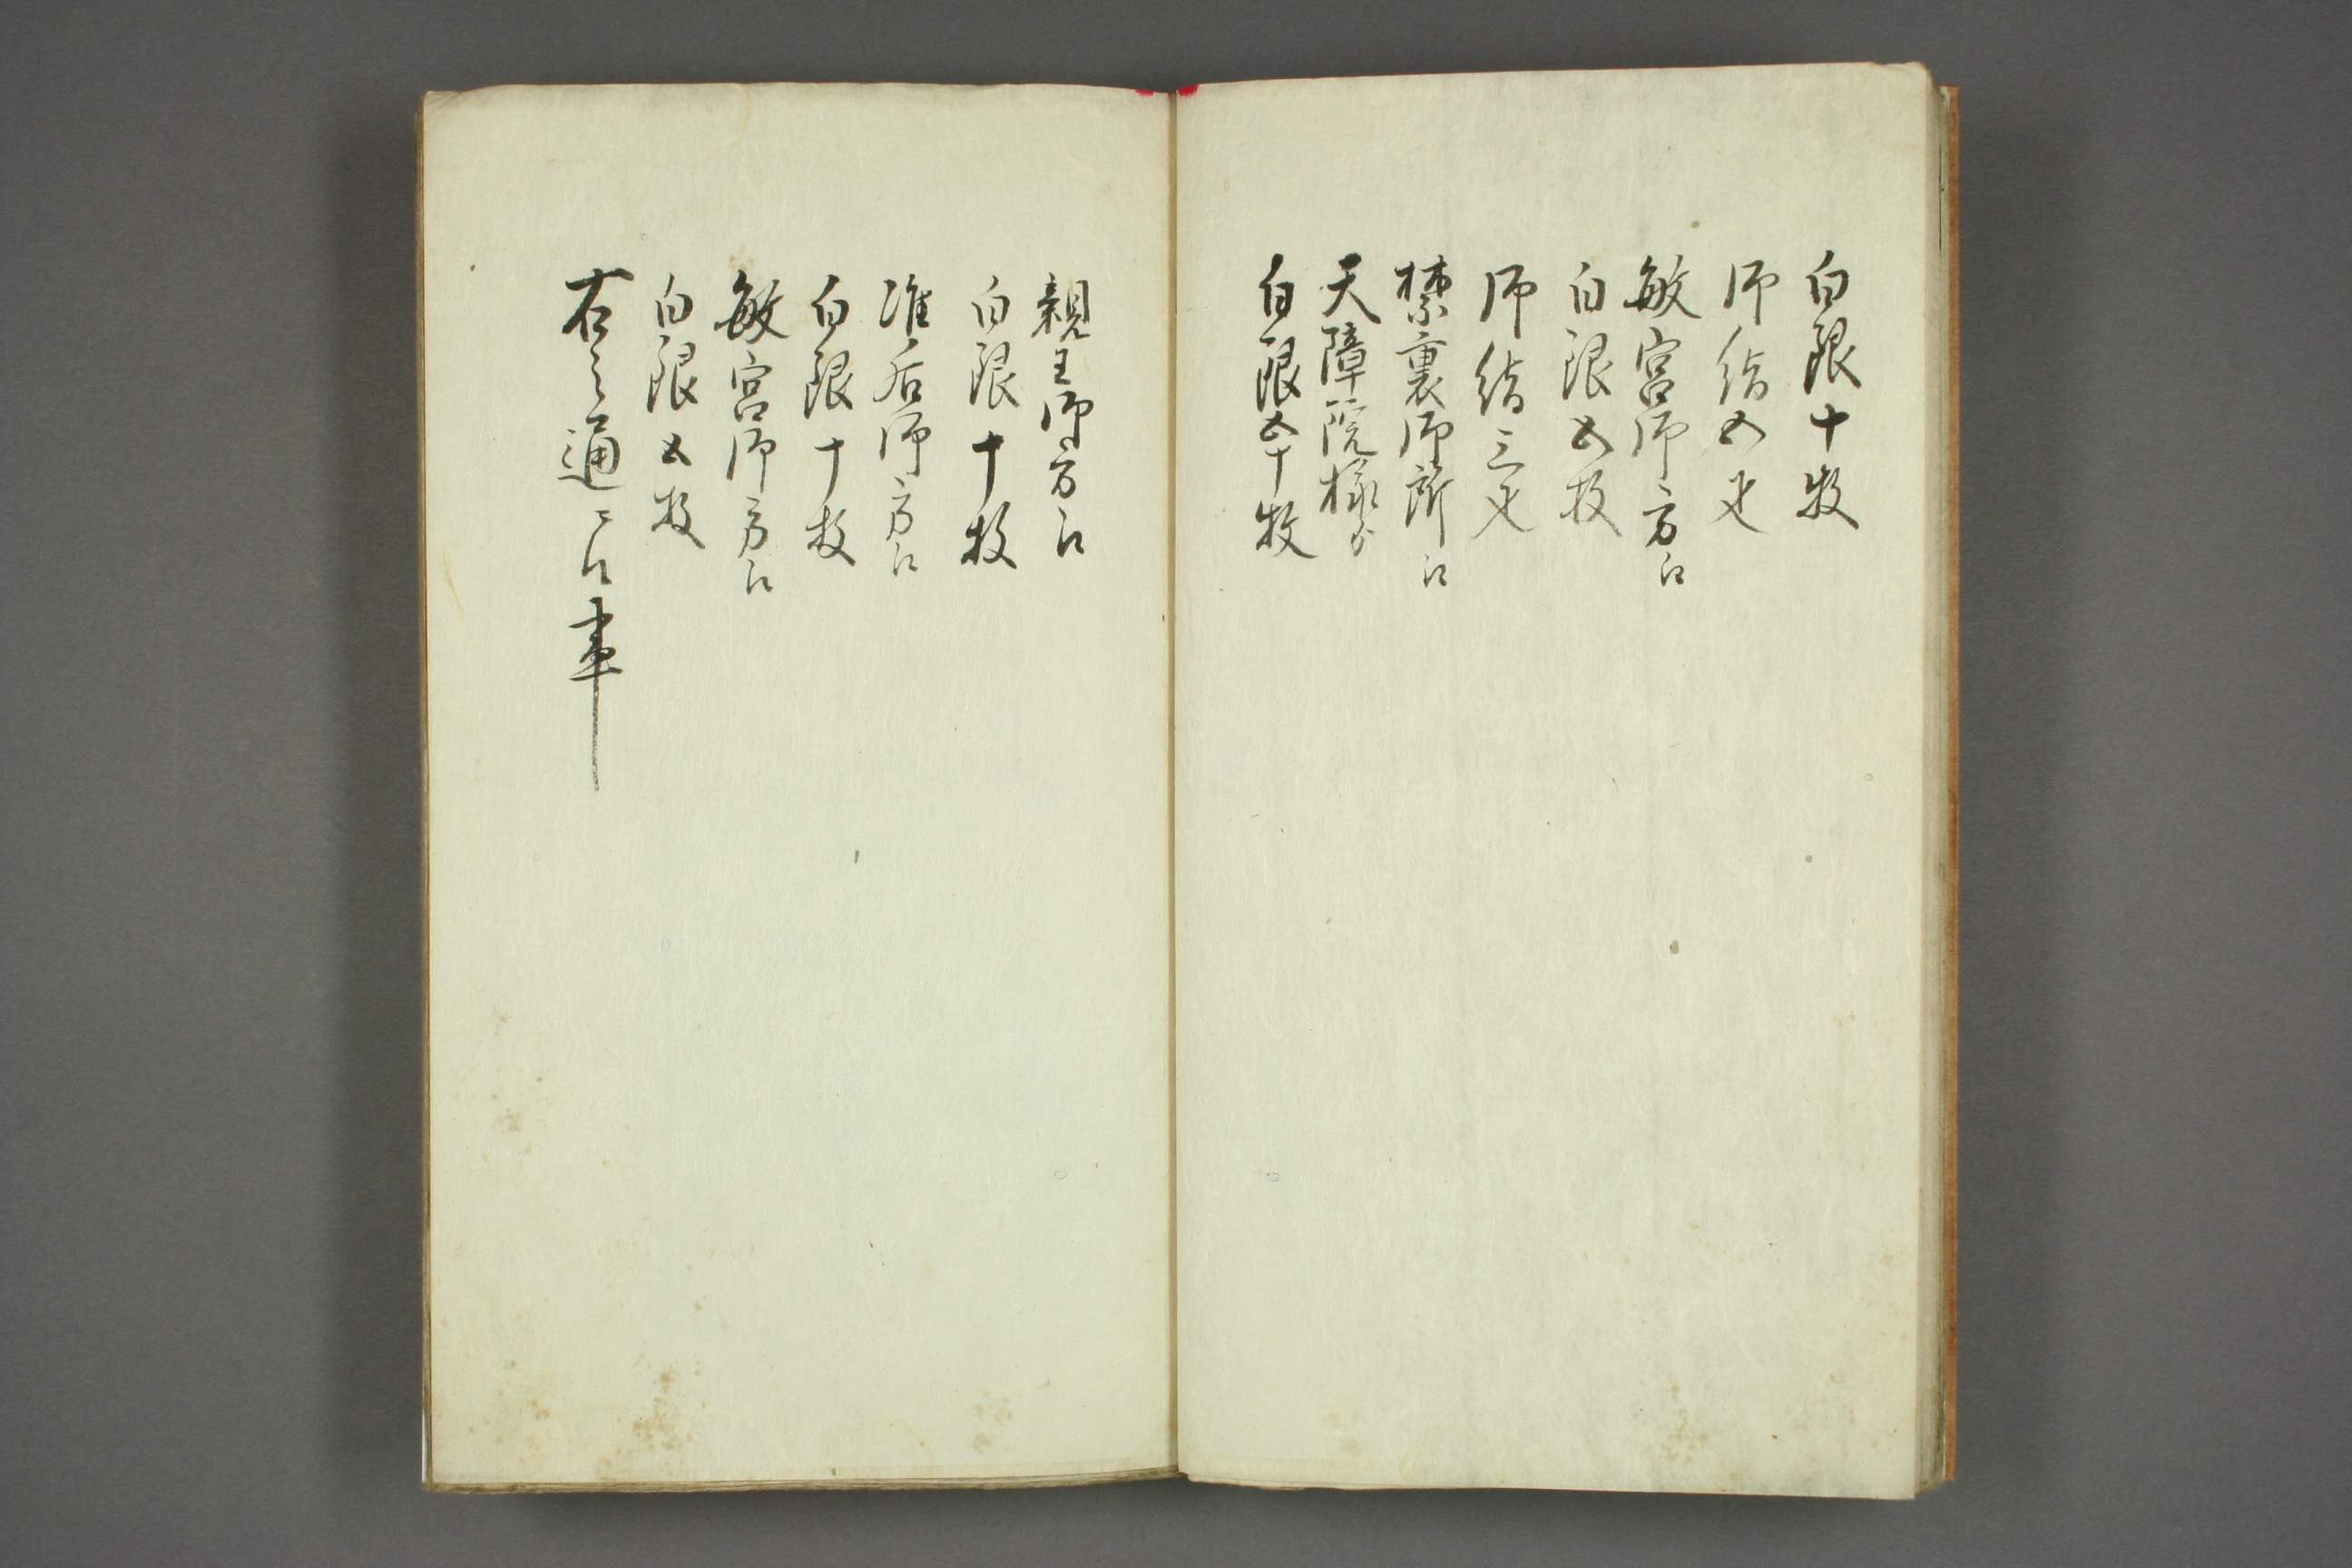 白銀十枚
御絹五疋
敏宮御方江
白銀五枚
御絹三疋
禁裏御所江
天璋院様ゟ
白銀五十枚
親王御方江
白銀十枚
准后御方江
白銀十枚
敏宮御方江
白銀五枚
右之通ニ候事